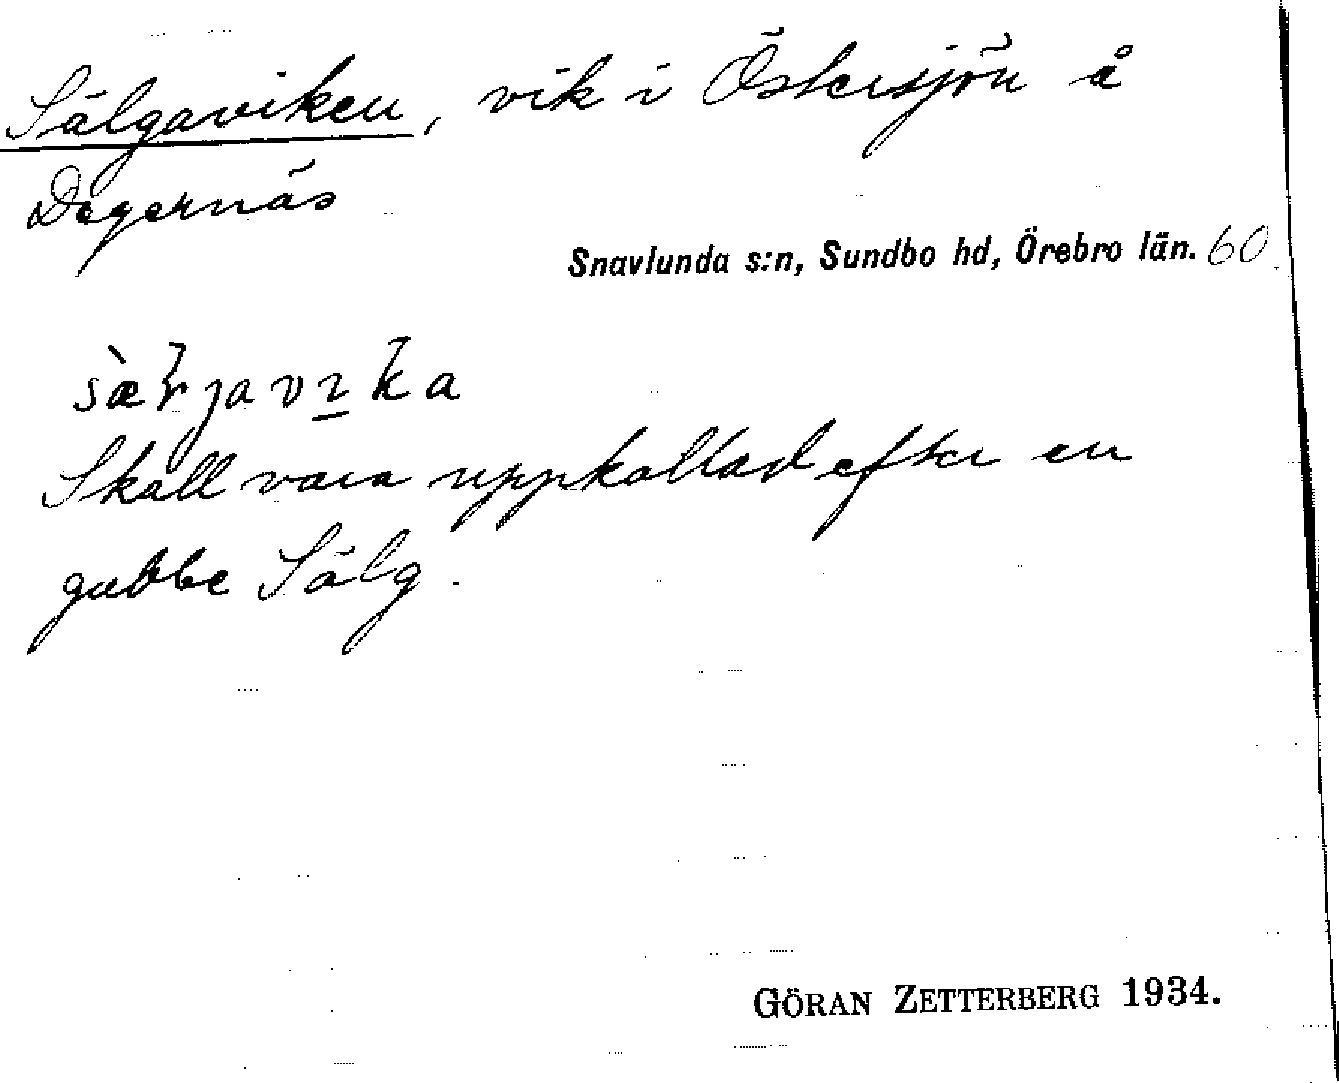 Sälgaviken, vik i Östersjön å
Degernäs
Snavlunda s:n, Sundbo hd, Örebro län. 60
Skall vara uppkallad efter en
gubbe Sälg.
GÖRAN ZETTERBERG 1934.